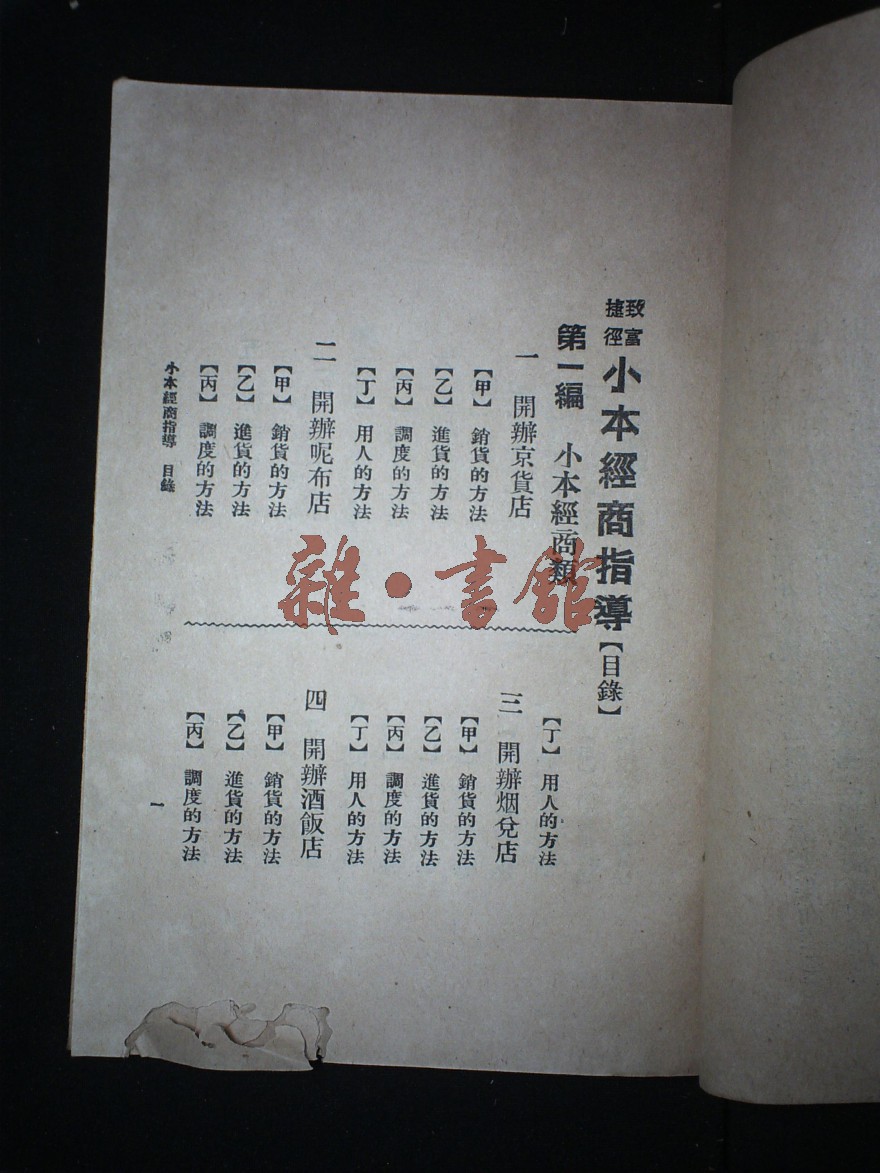 致富捷徑
小本經商指導【目錄】
第一編　小本經商類
一　開辦京貨店
【甲】　銷貨的方法
【乙】　進貨的方法
【丙】　調度的方法
【丁】　用人的方法
二　開辦呢布店
【甲】　銷貨的方法
【乙】　進貨的方法
【丙】　調度的方法
【丁】　用人的方法
三　開辦烟兌店
【甲】　銷貨的方法
【乙】　進貨的方法
【丙】　調度的方法
【丁】　用人的方法
四　開辦酒飯店
【甲】　銷貨的方法
【乙】　進貨的方法
【丙】　調度的方法
小本經商指導　目錄
一
雜·書館